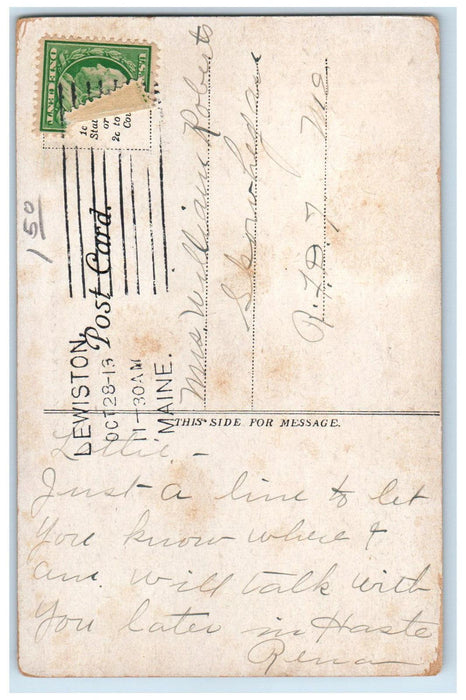 U.S. POSTAGE
ONE CENT
1c
Stat
or
2c to
Cou
Post Card.
LEWISTON,
OCT 28-13
11-30AM
MAINE.
150
Mrs. William Roberts
Skowhegan
R.F.D. 7 Me
THIS SIDE FOR MESSAGE.
Lettie. -
Just a line to let
you know where I
am. Will talk with
you later in Haste
Rena